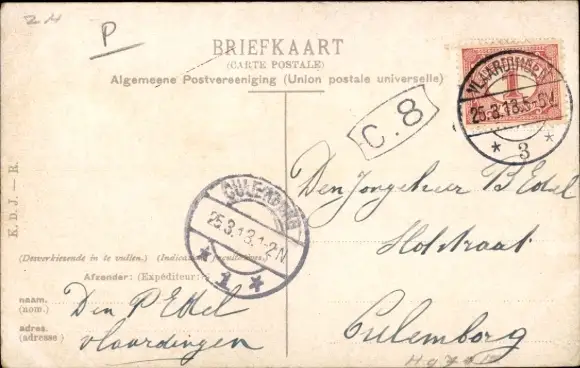 ZM
P
BRIEFKAART
(CARTE POSTALE)
Algemeene Postvereeniging (Union postale universelle)
VLAARDINGEN
1
25.3.13.5-6V
* 3 *
C. 8
CULEMBORG
25.3.13.1-2N
* 1 *
K. D. J. — R.
Den Jongeheer B Edel
Hofstraat
Culemborg
(Desverkiezende in te vullen.) (Indications facultatives.)
Afzender: (Expéditeur:)
naam. (nom.)
Den P Edel
adres. (adresse)
Vlaardingen